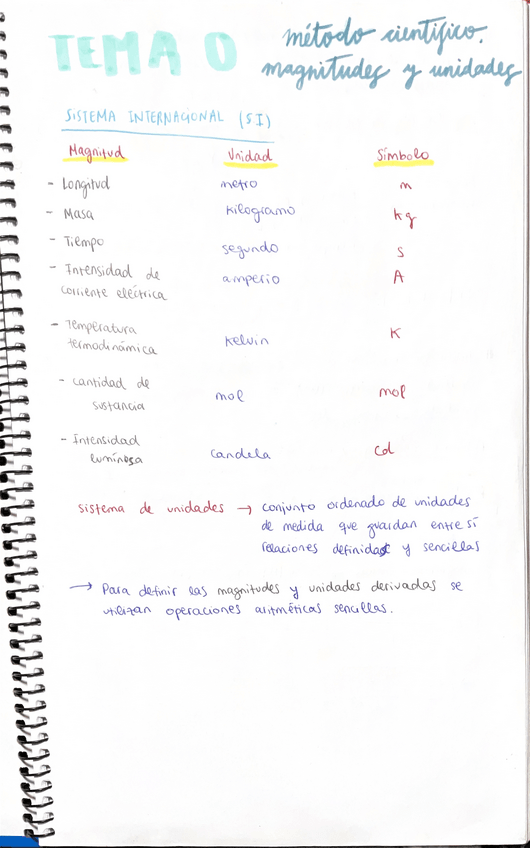 TEMA 0
método científico.
magnitudes y unidades
SISTEMA INTERNACIONAL (SI)
Magnitud Unidad Símbolo
- Longitud metro m
- Masa kilogramo kg
- Tiempo segundo s
- Intensidad de
corriente eléctrica amperio A
- Temperatura
termodinámica kelvin K
- cantidad de
sustancia mol mol
- Intensidad
luminosa candela cd
sistema de unidades → conjunto ordenado de unidades
de medida que guardan entre sí
relaciones definidas y sencillas
→ Para definir las magnitudes y unidades derivadas se
utilizan operaciones aritméticas sencillas.